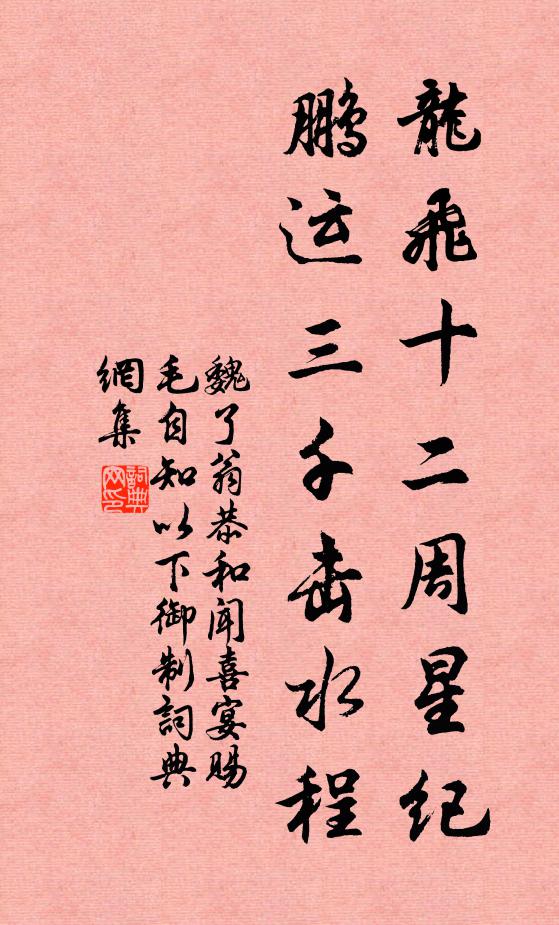 龍飛十二周星纪
鹏运三千击水程
魏了翁恭和闻喜宴赐
毛自知以下御制詞典
網集
詞典网印